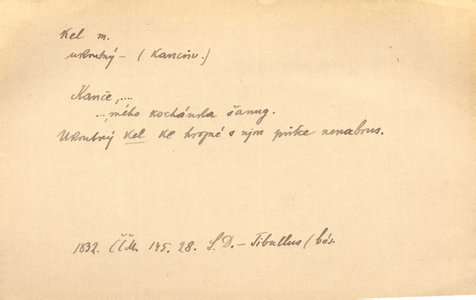 Kel m.
ukrutný – (Kancův.)
Kanče, ....
..., mého kochánka šanug.
Ukrutný kel ke hrozné s ním pitce nenabrus.
1832. ČČM. 145. 28. S. D. – Tibullus (bás.